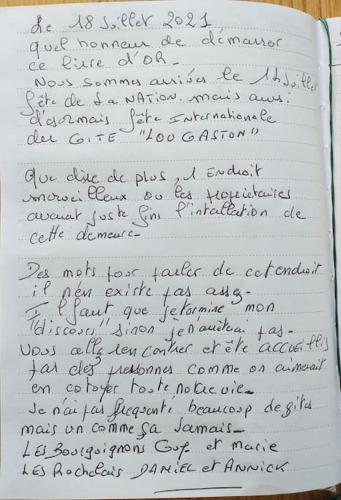 Le 18 Juillet 2021
quel honneur de démarrer
ce livre d'OR.
Nous sommes arrivés le 14 Juillet
fête de La NATION. mais aussi
désormais fête INTERNATIONALE
du GITE "LOU GASTON"
Que dire de plus, 1 ENdroit
merveilleux ou les propriétaires
avaient juste fini l'intallation de
cette demeure-
Des mots pour parler de cet endroit
il n'en existe pas assez-
Il faut que je termine mon
"discours" sinon je pas-
Vous allez rencontrer et être accueillis
par des personnes comme on aimerait
en cotoyer toute notre vie-
Je n'ai pas frequenté beaucoup de gites
mais un comme ça Jamais-
LES Bourguignons Guy et marie
LES Rochelais DANIEL et ANNICK